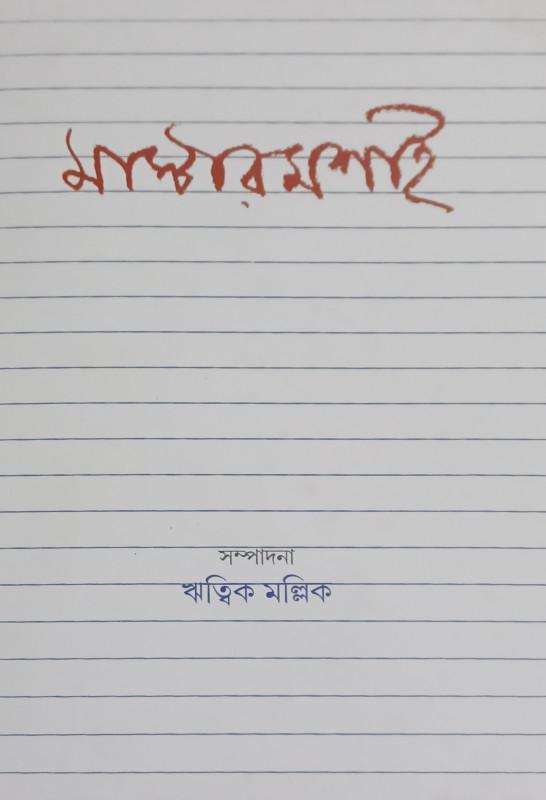 মাস্টারমশাই
সম্পাদনা
ঋত্বিক মল্লিক